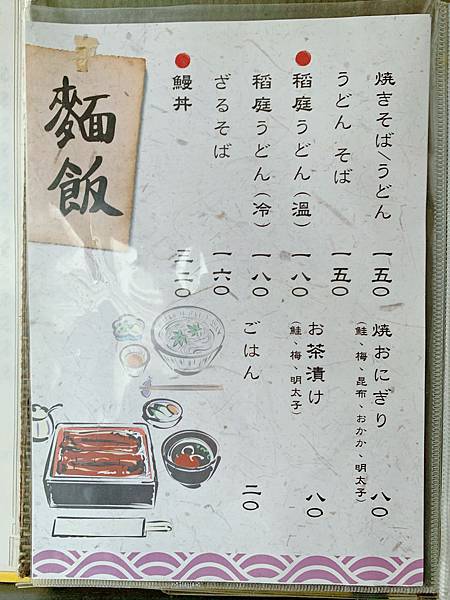 麵飯
焼きそば\うどん 一五〇
うどん そば 一五〇
稻庭うどん(溫) 一八〇
稻庭うどん(冷) 一八〇
ざるそば 一六〇
鰻丼 三二〇
焼おにぎり 八〇
(鮭、梅、昆布、おかか、明太子)
お茶漬け 八〇
(鮭、梅、明太子)
ごはん 二〇